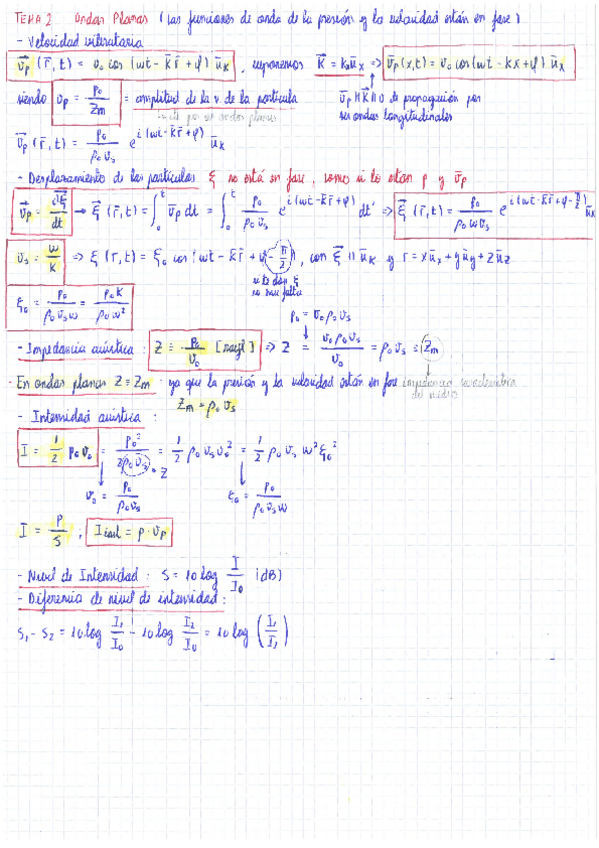 TEMA 2 Ondas Planas (Las funciones de onda de la presión y la velocidad están en fase)
- Velocidad vibratoria
v⃗p (r̄, t) = v₀ cos (ωt - k̄ r̄ + φ) ūk , suponemos k⃗ = k₀ūx ⇒ v̄p(x,t) = v₀ cos(ωt - kx + φ) ūx
siendo vp = p₀/Zm = amplitud de la v. de la partícula
v̄p ∥ k̄ ∥ v de propagación por ser ondas longitudinales
v̄p (r̄, t) = p₀/(ρ₀ vs) e^{i(ωt - k̄ r̄ + φ)} ūk
- Desplazamiento de las partículas ξ no está en fase, como sí lo están p y v̄p
v⃗p = dξ⃗/dt → ξ⃗ (r̄, t) = ∫₀ᵗ v̄p dt = ∫₀ᵗ p₀/(ρ₀ vs) e^{i(ωt - k̄ r̄ + φ)} dt' ⇒ ξ⃗ (r̄, t) = p₀/(ρ₀ ω vs) e^{i(ωt - k̄ r̄ + φ - π/2)} ūk
vs = ω/k ⇒ ξ (r̄, t) = ξ₀ cos (ωt - k̄ r̄ + φ - π/2), con ξ⃗ ∥ ūk y r = xūx + yūy + zūz
si te dan ξ no hace falta
ξ₀ = p₀/(ρ₀ vs ω) = p₀ k/(ρ₀ ω²)
p₀ = v₀ ρ₀ vs
- Impedancia acústica : Z ≡ p₀/v₀ [rayl] ⇒ Z = v₀ ρ₀ vs/v₀ = ρ₀ vs ≡ Zm
- En ondas planas Z ≡ Zm : ya que la presión y la velocidad están en fase impedancia característica del medio
Zm = ρ₀ vs
- Intensidad acústica :
I = 1/2 p₀ v₀ = p₀²/(2 ρ₀ vs) = 1/2 ρ₀ vs v₀² = 1/2 ρ₀ vs ω² ξ₀²
Z
v₀ = p₀/(ρ₀ vs) ξ₀ = p₀/(ρ₀ vs ω)
I = P/S ; I inst = p · vp
- Nivel de Intensidad : S = 10 log I/I₀ (dB)
- Diferencia de nivel de intensidad :
S₁ - S₂ = 10 log I₁/I₀ - 10 log I₂/I₀ = 10 log (I₁/I₂)